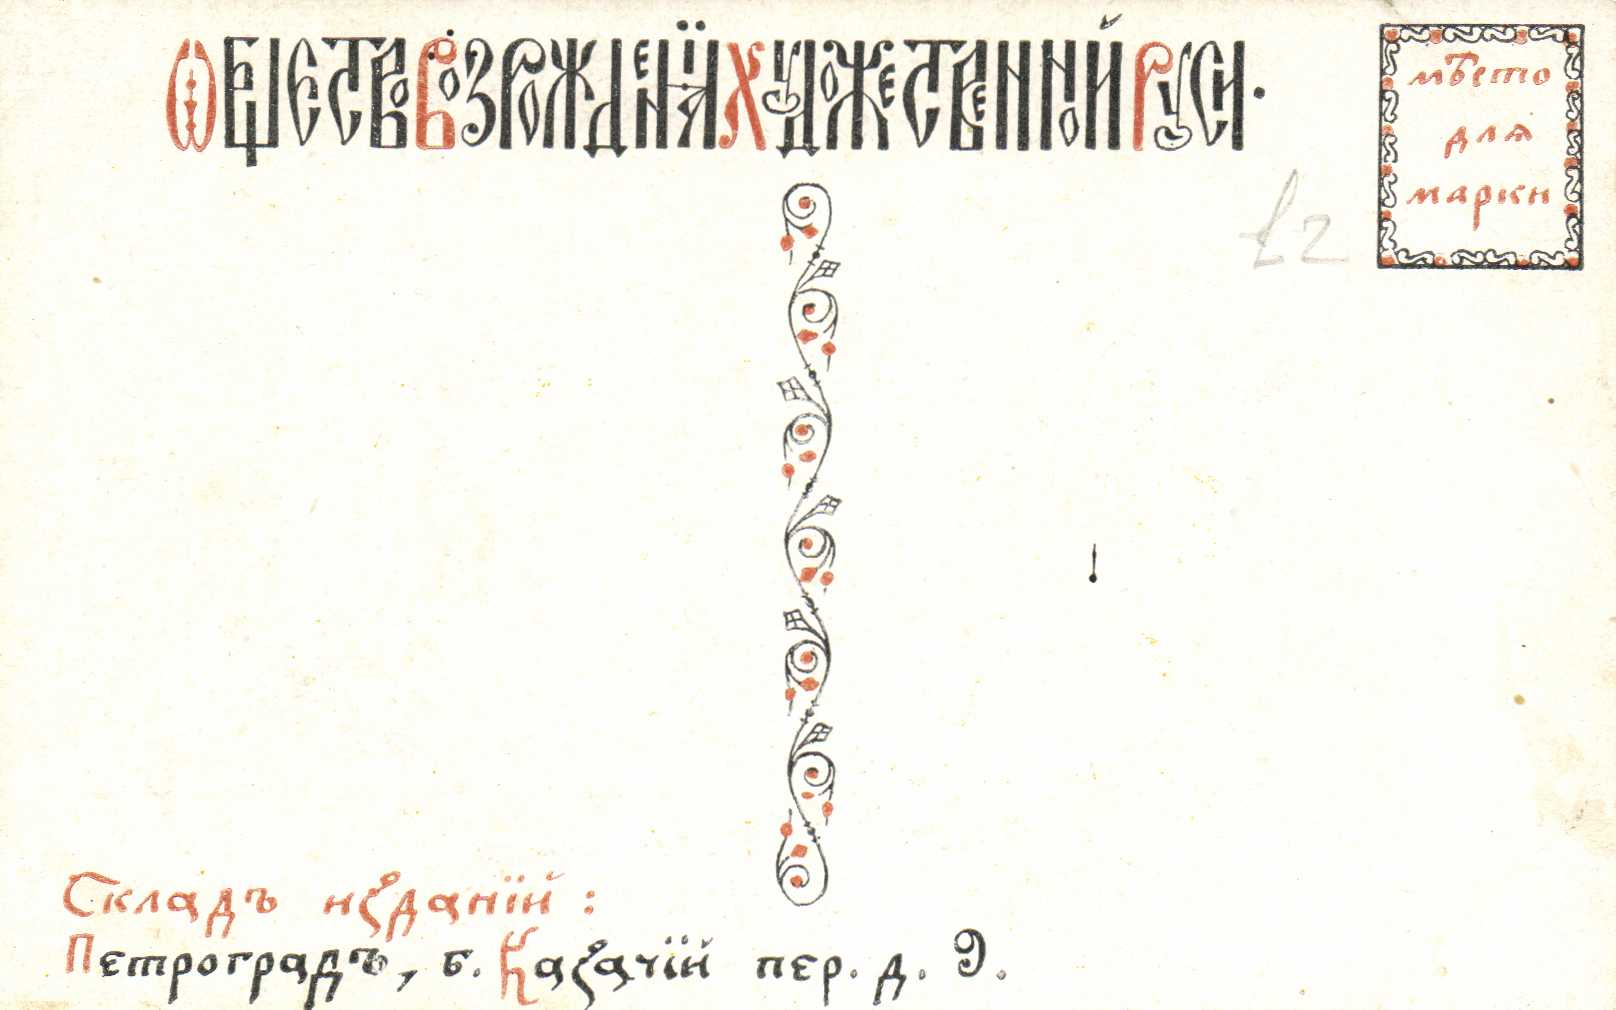 Ѻбщество Возрожденія Художественной Руси.
мѣсто
для
марки
£2
Складъ изданій:
Петроградъ, б. Казачій пер. д. 9.